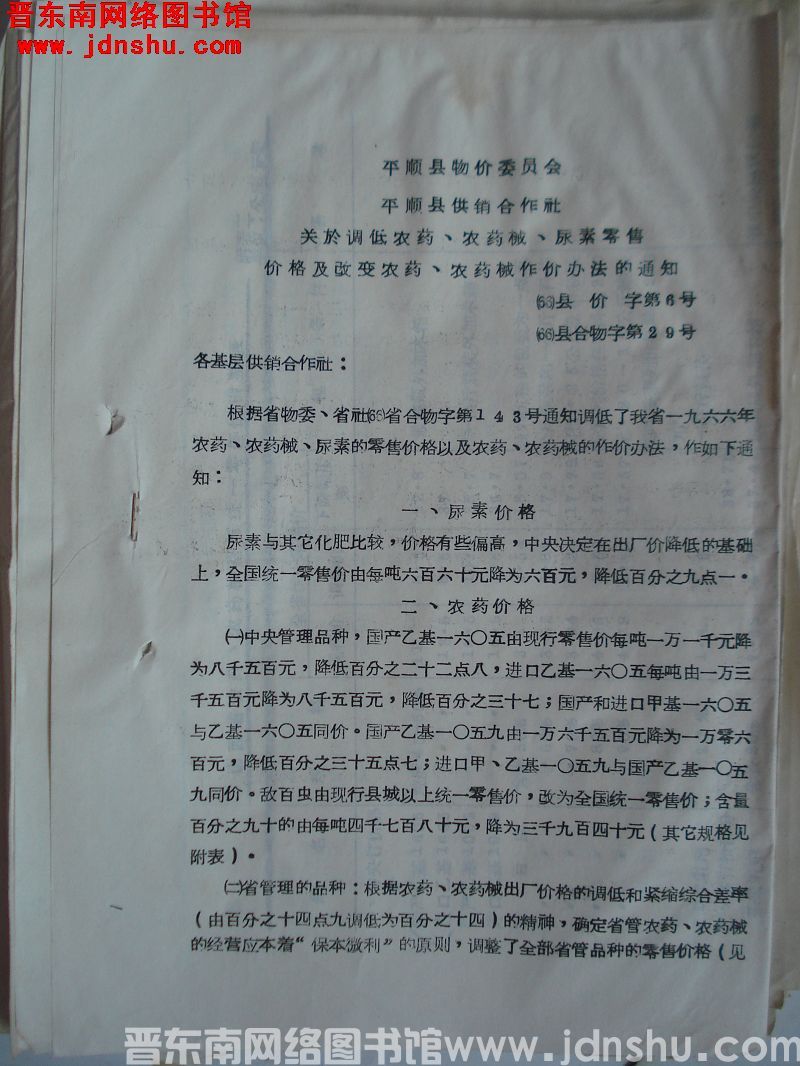 晋东南网络图书馆
www.jdnshu.com
平顺县物价委员会
平顺县供销合作社
关於调低农药、农药械、尿素零售
价格及改变农药、农药械作价办法的通知
(66)县 价 字第6号
(66)县合物字第29号
各基层供销合作社：
根据省物委、省社(66)省合物字第143号通知调低了我省一九六六年
农药、农药械、尿素的零售价格以及农药、农药械的作价办法，作如下通
知：
一、尿素价格
尿素与其它化肥比较，价格有些偏高，中央决定在出厂价降低的基础
上，全国统一零售价由每吨六百六十元降为六百元，降低百分之九点一。
二、农药价格
㈠中央管理品种，国产乙基一六〇五由现行零售价每吨一万一千元降
为八千五百元，降低百分之二十二点八，进口乙基一六〇五每吨由一万三
千五百元降为八千五百元，降低百分之三十七；国产和进口甲基一六〇五
与乙基一六〇五同价。国产乙基一〇五九由一万六千五百元降为一万零六
百元，降低百分之三十五点七；进口甲、乙基一〇五九与国产乙基一〇五
九同价。敌百虫由现行县城以上统一零售价，改为全国统一零售价；含量
百分之九十的由每吨四千七百八十元，降为三千九百四十元（其它规格见
附表）。
㈡省管理的品种：根据农药、农药械出厂价格的调低和紧缩综合差率
（由百分之十四点九调低为百分之十四）的精神，确定省管农药、农药械
的经营应本着“保本微利”的原则，调整了全部省管品种的零售价格（见
晋东南网络图书馆www.jdnshu.com